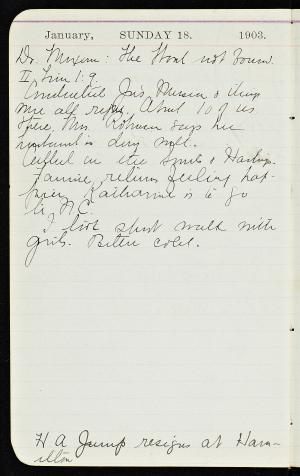 January, SUNDAY 18. 1903.
Dr. : The Word not Bound.
II Tim 1:9.
Conducted Jr's, Mission & things
were all right. About 10 of us
there. Mrs. Robinson says her
husband is very well.
Called on the Smiths &
Fannie returns feeling hap-
pier. Katharine is to go
to N.C.
I took short walk with
girls. Bitter cold.
H A Jump resigns at Ham-
ilton